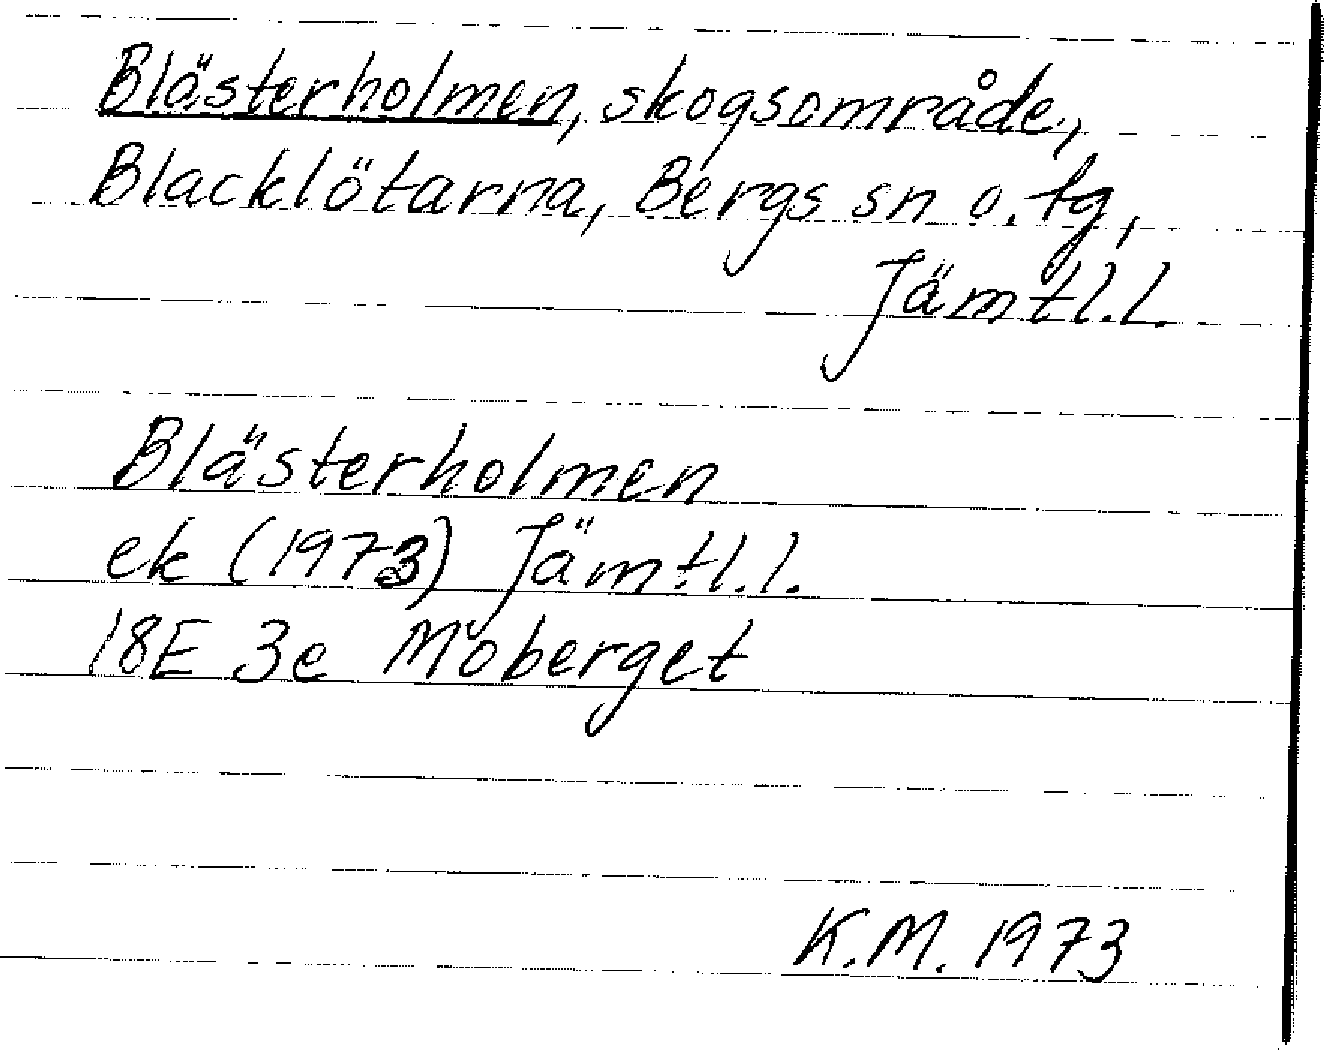 Blästerholmen, skogsområde,
Blacklötarna, Bergs sn o. tg,
Jämtl.l.
Blästerholmen
ek (1973) Jämtl.l.
18E 3e Moberget
K.M. 1973